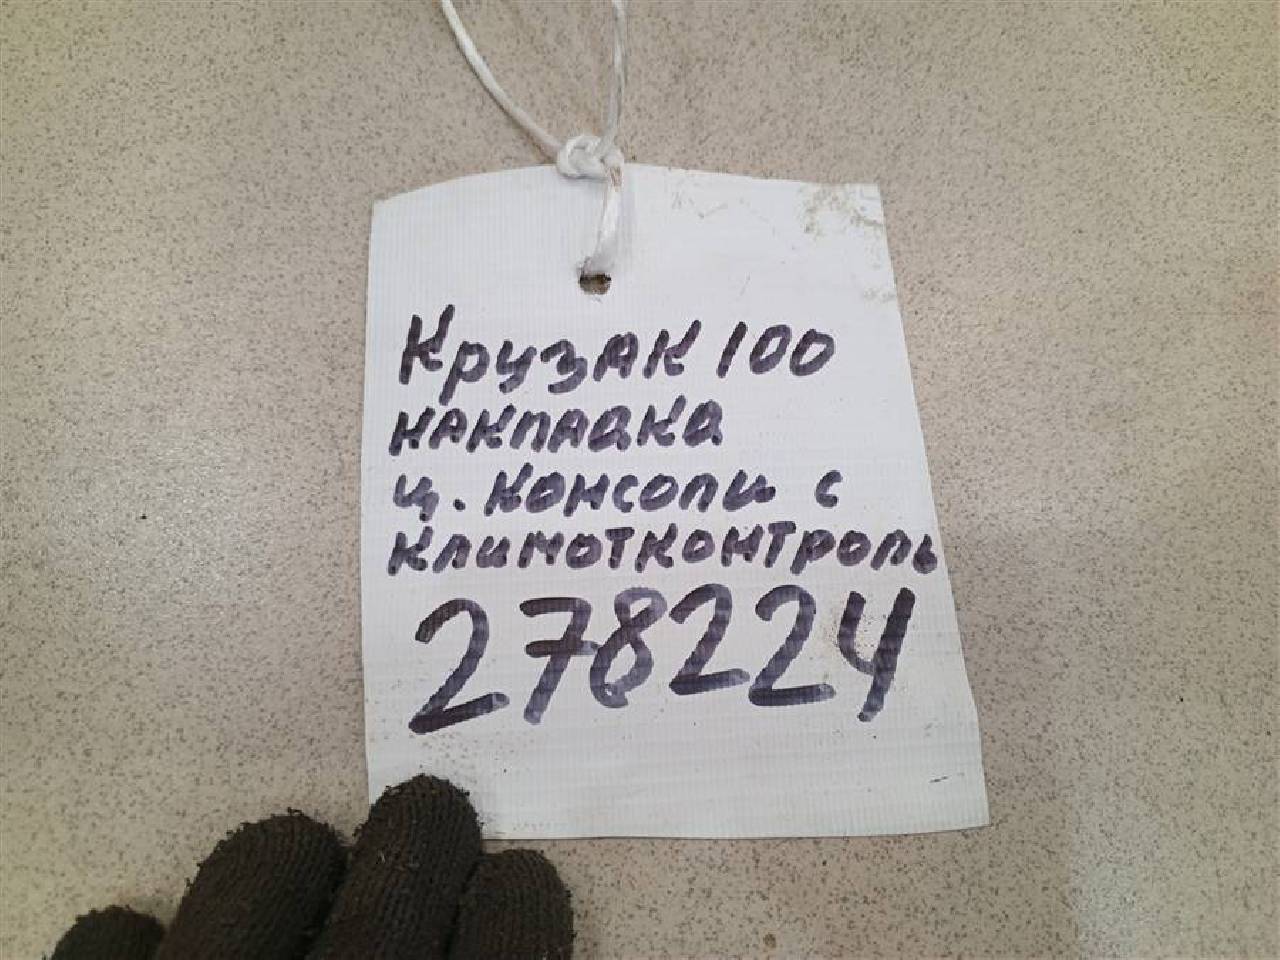 Крузак 100
накладка
ц. консоли с
климотконтроль
278224